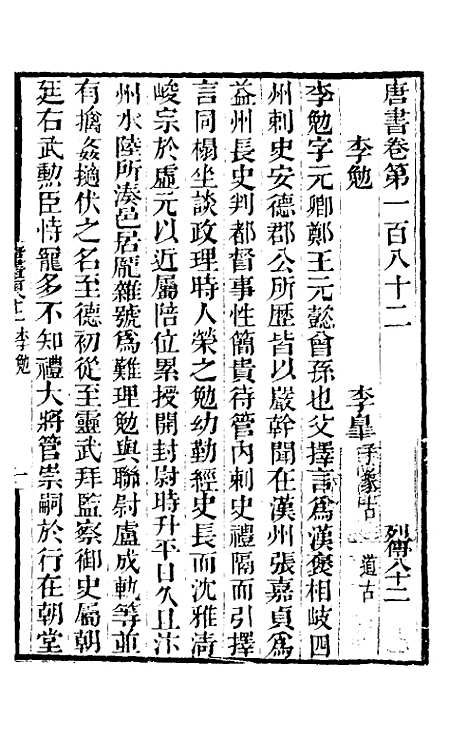 唐書卷第一百八十二　列傳八十二
李勉　李皐 子象古 道古
李勉字元卿鄭王元懿曾孫也父擇言爲漢襃相岐四
州刺史安德郡公所歷皆以嚴幹聞在漢州張嘉貞爲
益州長史判都督事性簡貴待管内刺史禮隔而引擇
言同榻坐談政理時人榮之勉幼勤經史長而沈雅清
峻宗於虛元以近屬陪位累授開封尉時升平日久且汴
州水陸所湊邑居龎雜號爲難理勉與聯尉盧成軌等並
有擒姦擿伏之名至德初從至靈武拜監察御史屬朝
廷右武勲臣恃寵多不知禮大將管崇嗣於行在朝堂
李勉
一